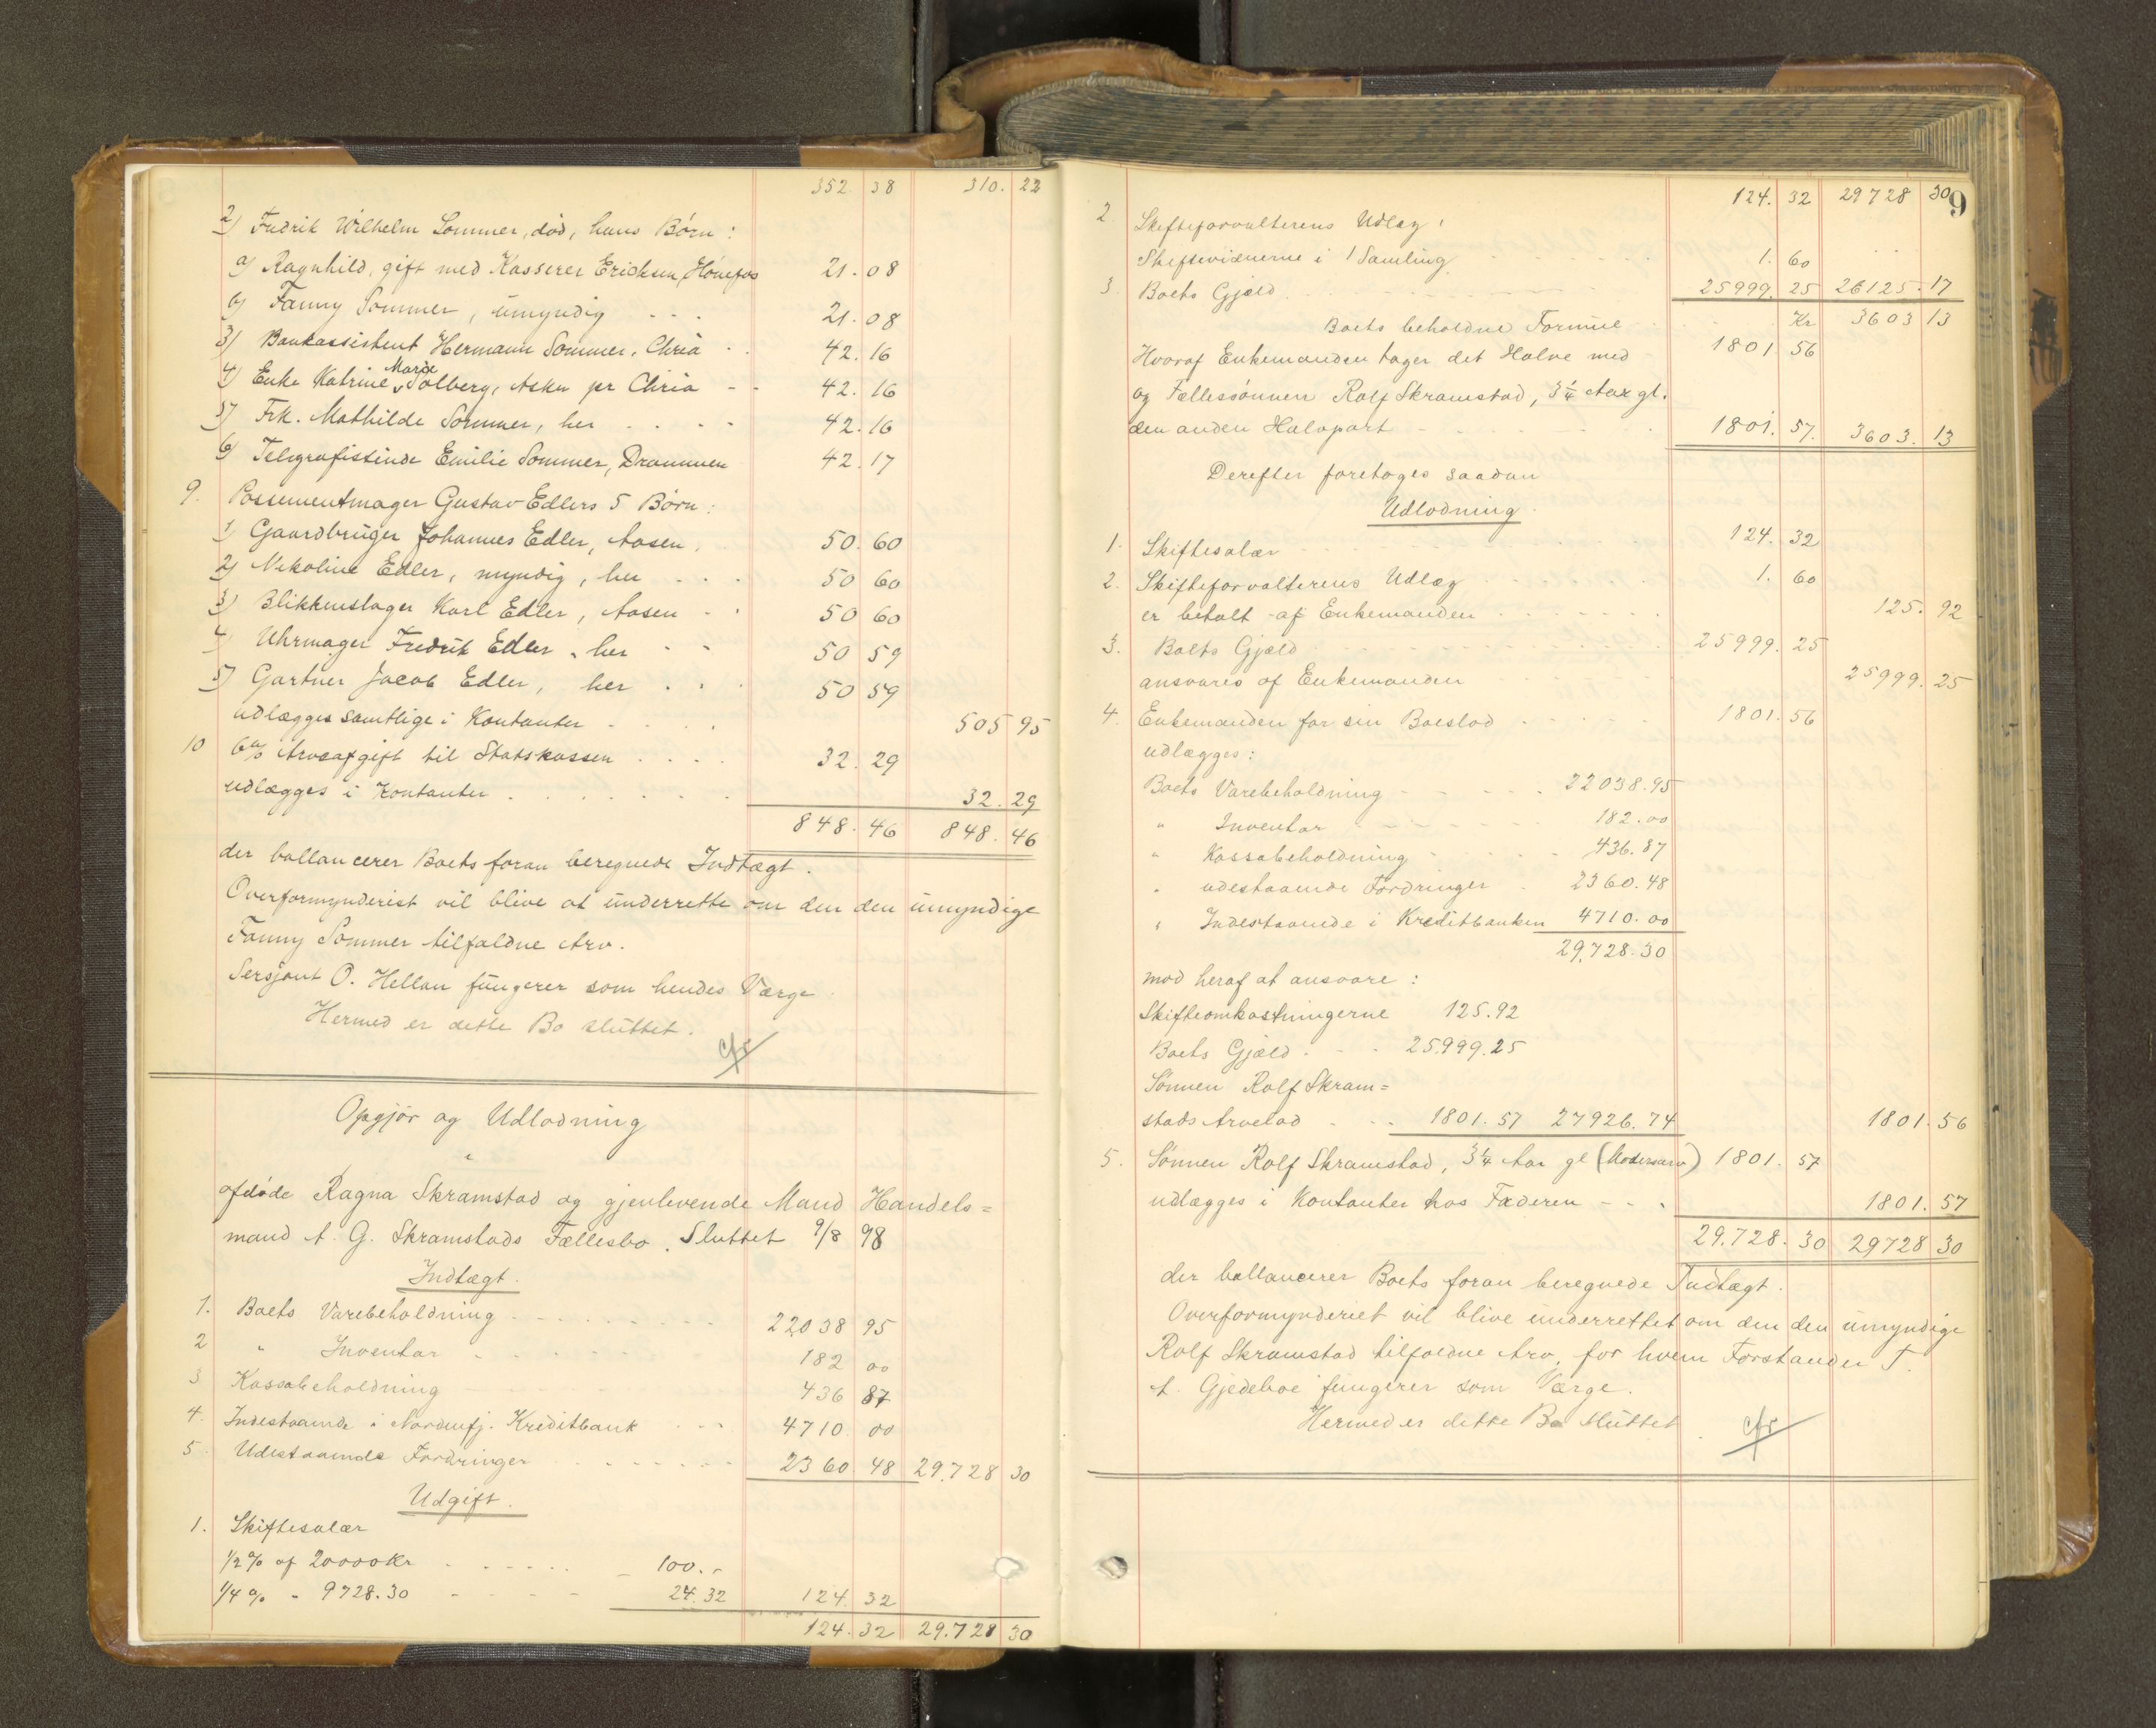 352 38 310. 22
2) Fredrik Wilhelm Sommer, död, hans Börn:
a) Ragnhild, gift med Kasserer Ericksen, Hönefos 21. 08
b) Fanny Sommer, umyndig 21. 08
3) Bankassistent Hermann Sommer, Chria 42. 16
4) Enke Katrine Marie Solberg, Asker pr Chria 42. 16
5) Frk. Mathilde Sommer, her 42. 16
6) Telegrafistinde Emilie Sommer, Drammen 42. 17
9. Possementmager Gustav Edlers 5 Börn:
1) Gaardbruger Johannes Edler, Aasen, 50. 60
2) Nikoline Edler, myndig, her 50 60
3) Blikkenslager Karl Edler, Aasen 50 60
4) Uhrmager Fredrik Edler, her 50 59
5) Gartner Jacob Edler, her 50 59
udlægges samtlige i Kontanter 505 95
10 6% Arveafgift til Statskassen 32. 29
udlægges i Kontanter 32. 29
848. 46 848. 46
der ballancerer Boets foran beregnede Indtægt.
Overformynderiet vil blive at underrette om den den umyndige
Fanny Sommer tilfaldne Arv.
Sersjant O. Hellan fungerer som hendes Værge
Hermed er dette Bo sluttet.
Opgjör og Udlodning
i
afdöde Ragna Skramstad og gjenlevende Mand Handels=
mand A. G. Skramstads Fællesbo. Sluttet 9/8 98
Indtægt.
1. Boets Varebeholdning 22038 95
2 " Inventar 182 00
3 Kassabeholdning 436 87
4. Indestaaende i Nordenfj. Kreditbank 4710 00
5 Udestaaende Fordringer 2360 48 29.728 30
Udgift.
1. Skiftesalær
1/2 % af 20000 Kr 100.-
1/4 % " 9728.30 24.32 124. 32
124. 32 29.728 30
9
124. 32 29728 30
2. Skifteforvalterens Udlæg:
Skiftevidnerne i 1 Samling 1. 60
3 Boets Gjæld 25999. 25 26125. 17
Boets beholdne Formue Kr 3603 13
Hvoraf Enkemanden tager det Halve med 1801 56
og Fællessönnen Rolf Skramstad, 3 1/4 Aar gl.
den anden Halvpart 1801. 57. 3603. 13
Derefter foretages saadan
Udlodning.
1. Skiftesalær 124. 32
2. Skifteforvalterens Udlæg 1. 60
er betalt af Enkemanden 125. 92
3. Boets Gjæld 25999. 25
ansvares af Enkemanden 25999. 25
4. Enkemanden for sin Boeslod 1801. 56
udlægges:
Boets Varebeholdning 22038.95
" Inventar 182.00
" Kassabeholdning 436.87
" udestaaende Fordringer 2360.48
" Indestaaende i Kreditbanken 4710.00
29.728.30
mod heraf at ansvare:
Skifteomkostningerne 125.92
Boets Gjæld 25.999.25
Sönnen Rolf Skram=
stads Arvelod 1801.57 27926.74 1801. 56
5. Sönnen Rolf Skramstad, 3 1/4 Aar gl (Modersarv) 1801. 57
udlægges i Kontanter hos Faderen 1801. 57
29.728. 30 29728 30
der ballancerer Boets foran beregnede Indtægt.
Overformynderiet vil blive underrettet om den den umyndige
Rolf Skramstad tilfaldne Arv, for hvem Forstander T.
A. Gjedeboe fungerer som Værge.
Hermed er dette Bo sluttet.